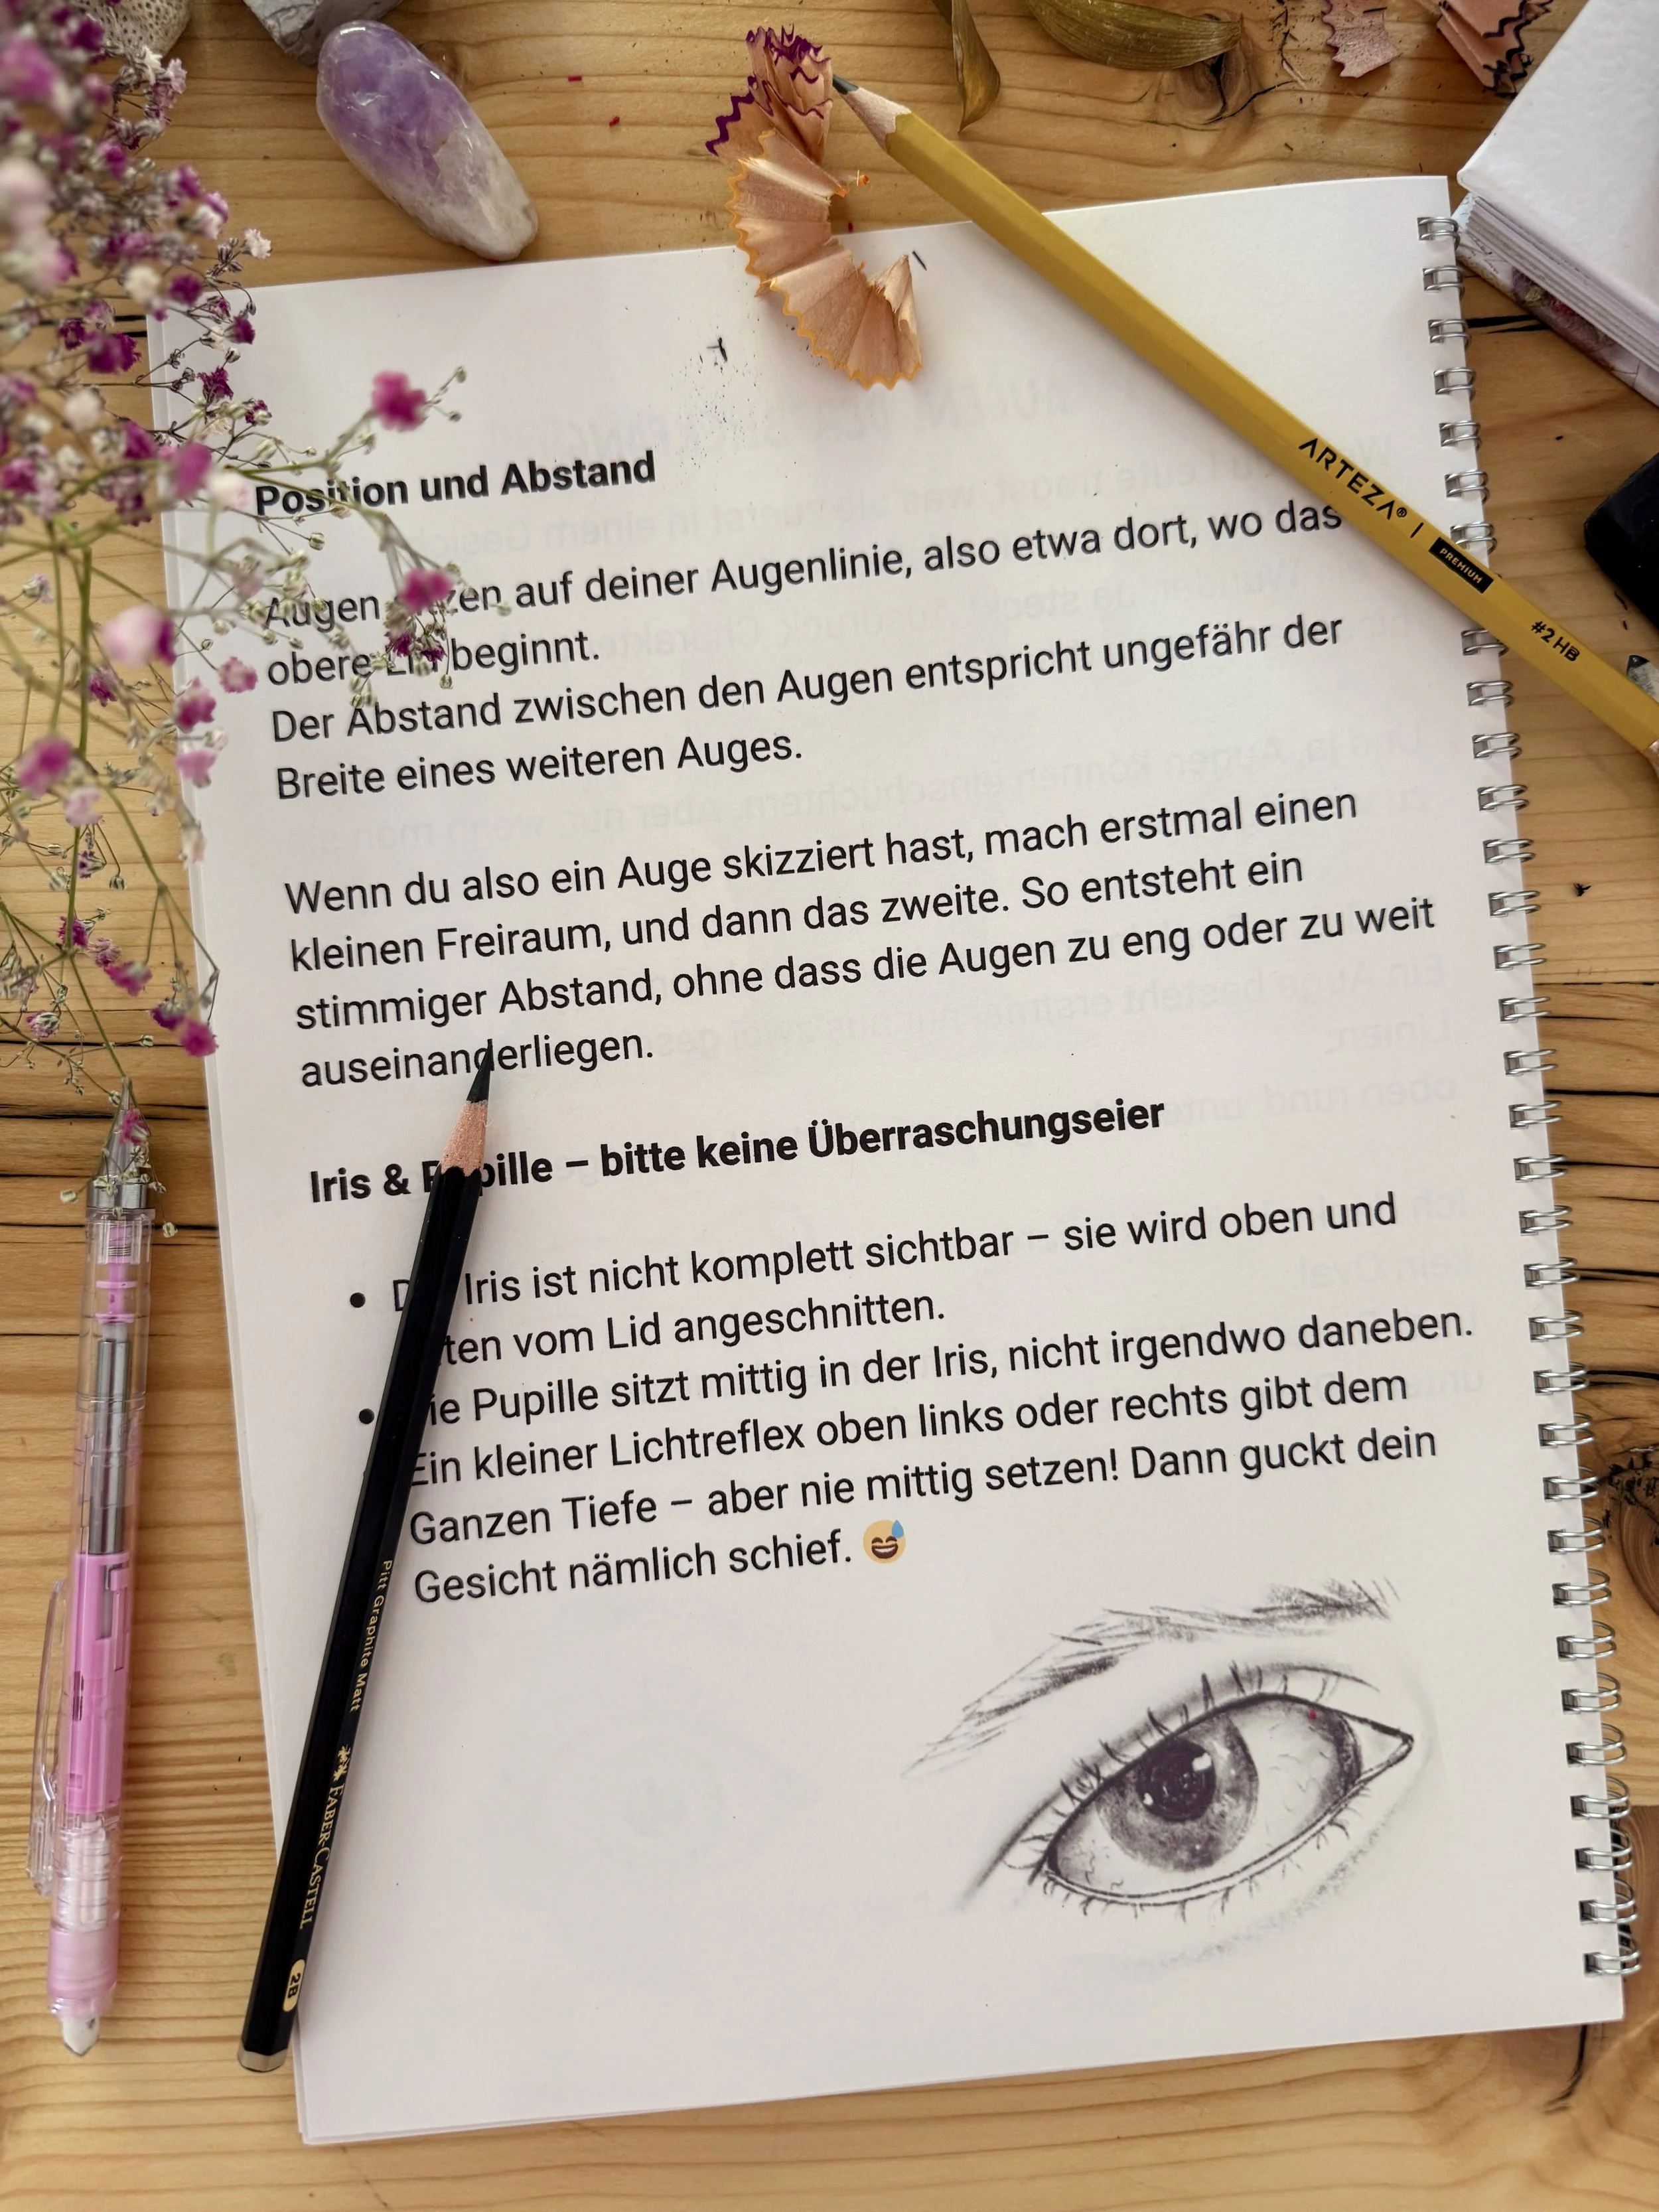 Position und Abstand
Augen sitzen auf deiner Augenlinie, also etwa dort, wo das
obere Lid beginnt.
Der Abstand zwischen den Augen entspricht ungefähr der
Breite eines weiteren Auges.
Wenn du also ein Auge skizziert hast, mach erstmal einen
kleinen Freiraum, und dann das zweite. So entsteht ein
stimmiger Abstand, ohne dass die Augen zu eng oder zu weit
auseinanderliegen.
Iris & Pupille – bitte keine Überraschungseier
• Die Iris ist nicht komplett sichtbar – sie wird oben und
unten vom Lid angeschnitten.
• Die Pupille sitzt mittig in der Iris, nicht irgendwo daneben.
Ein kleiner Lichtreflex oben links oder rechts gibt dem
Ganzen Tiefe – aber nie mittig setzen! Dann guckt dein
Gesicht nämlich schief. 😅
ARTEZA® | PREMIUM #2 HB
Pitt Graphite Matt FABER-CASTELL 2B